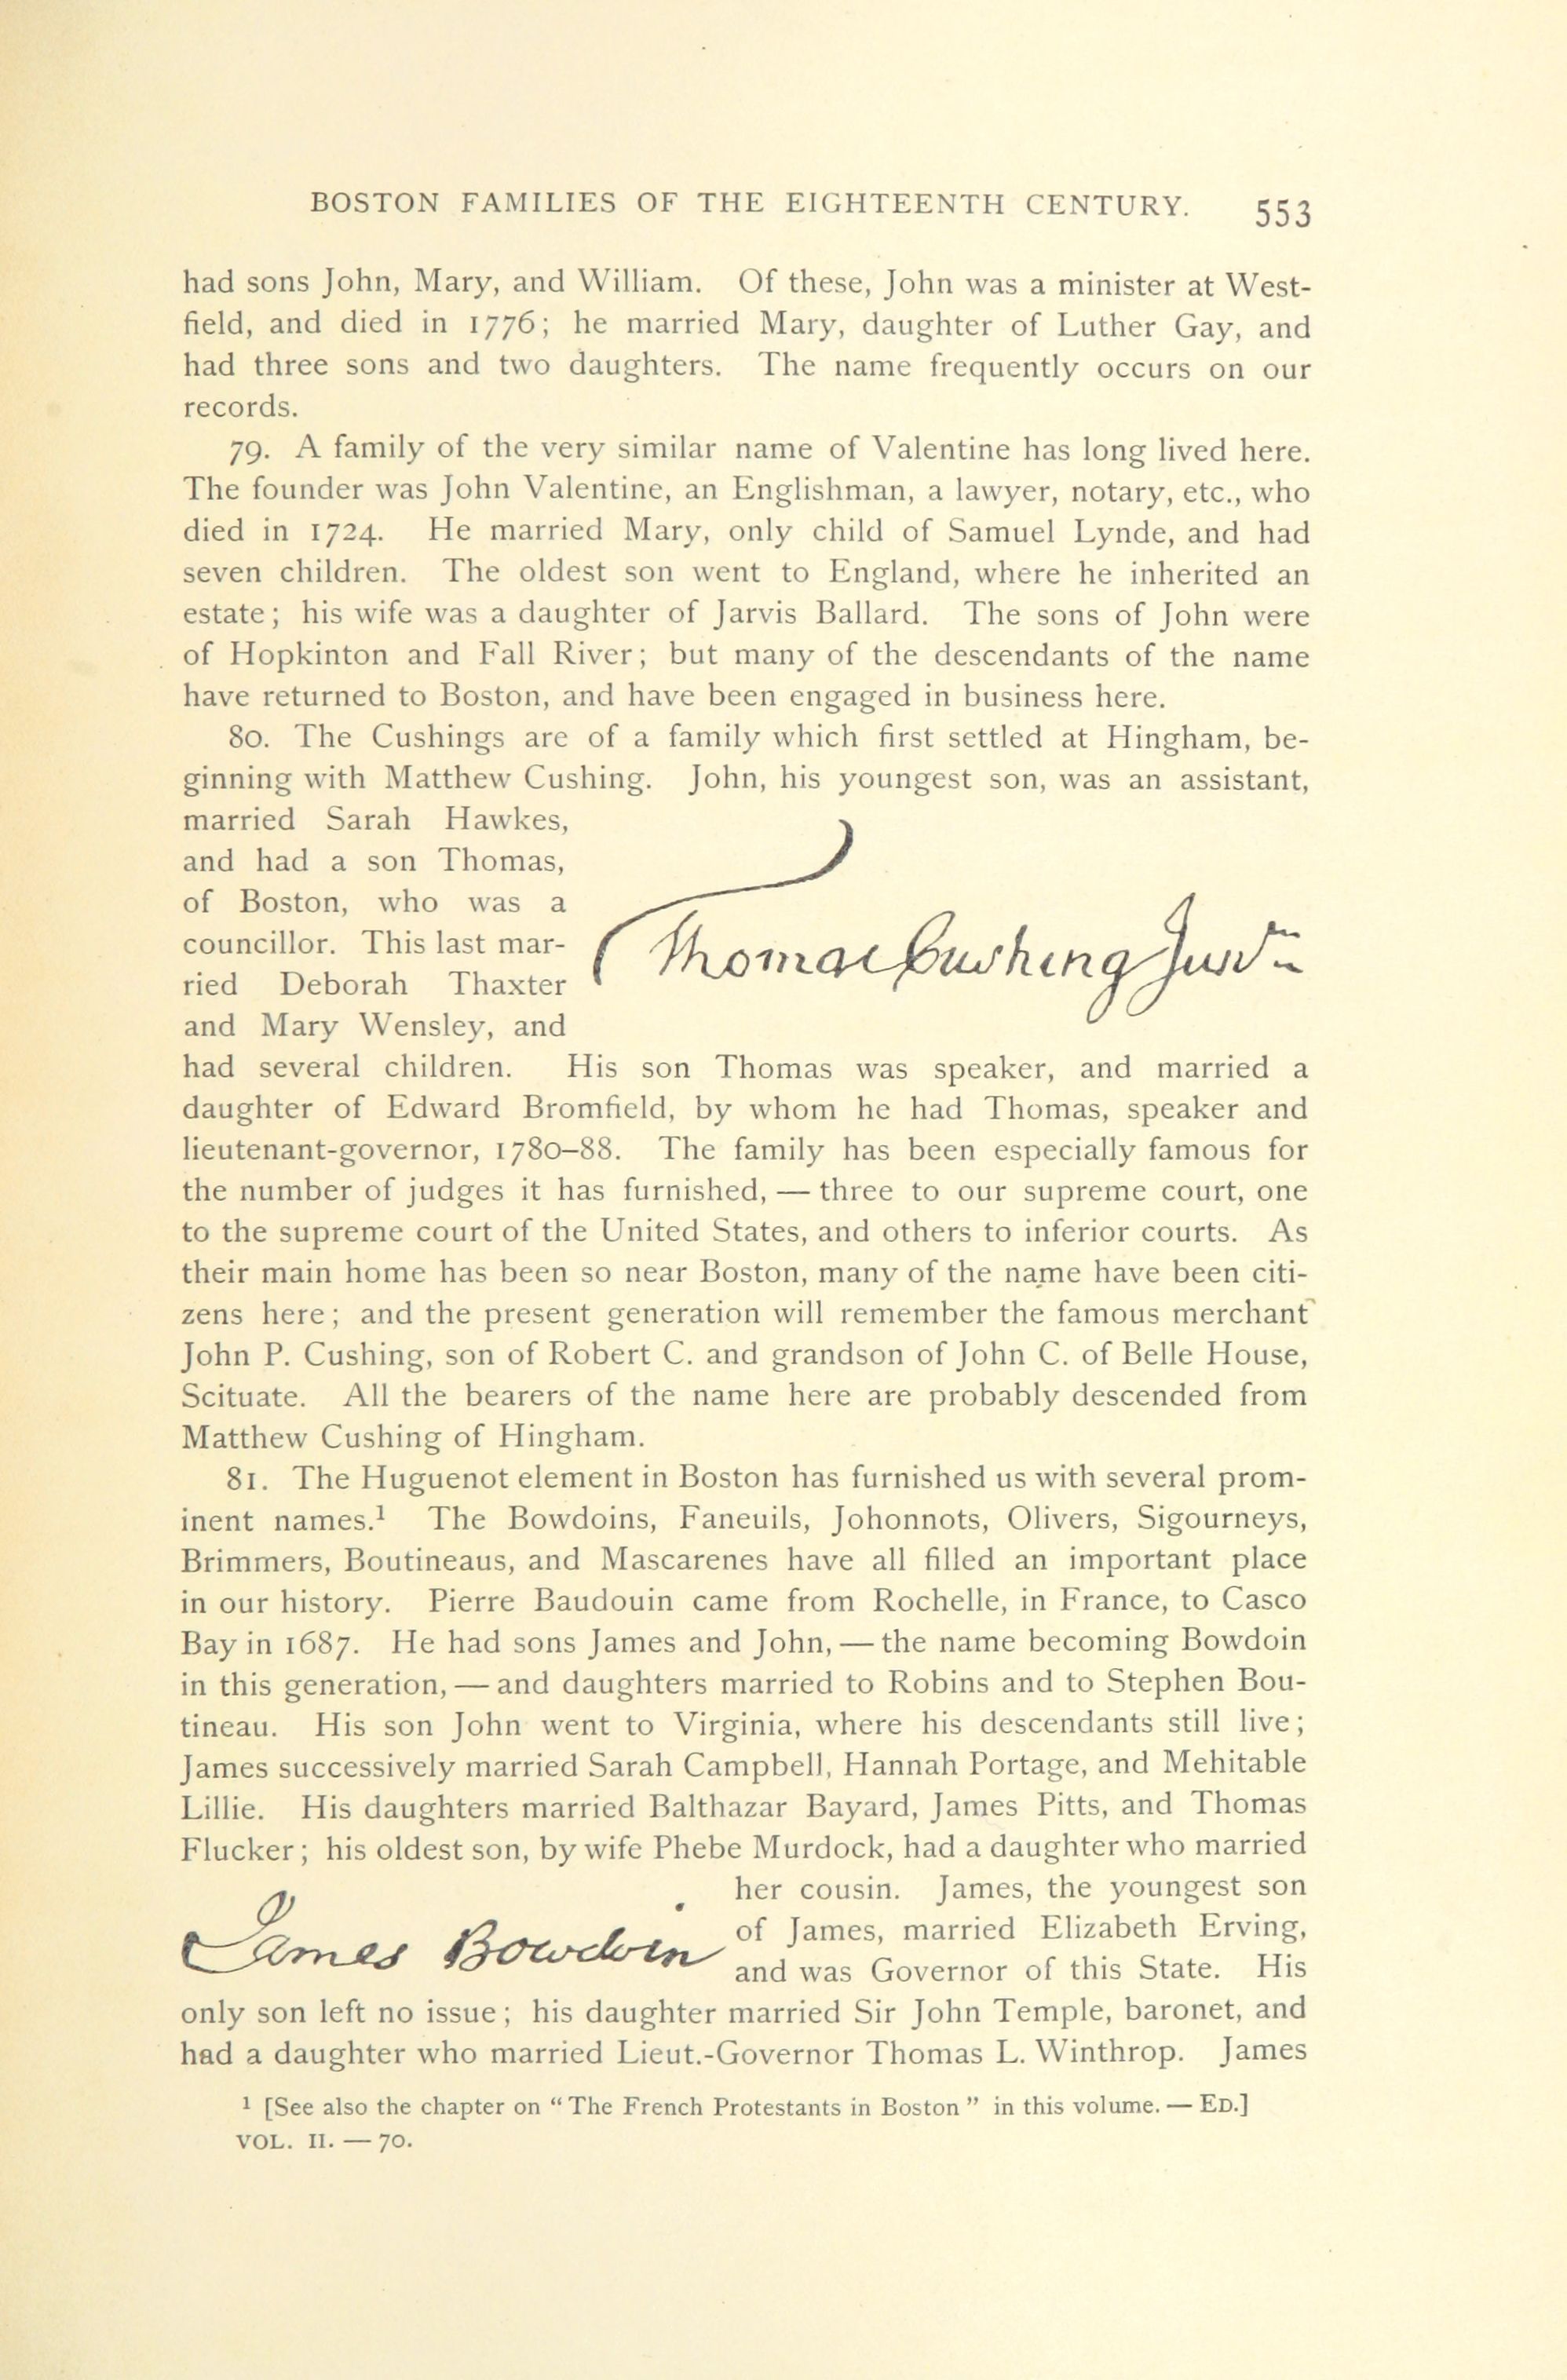 BOSTON FAMILIES OF THE EIGHTEENTH CENTURY. 553
had sons John, Mary, and William. Of these, John was a minister at West-
field, and died in 1776; he married Mary, daughter of Luther Gay, and
had three sons and two daughters. The name frequently occurs on our
records.
79. A family of the very similar name of Valentine has long lived here.
The founder was John Valentine, an Englishman, a lawyer, notary, etc., who
died in 1724. He married Mary, only child of Samuel Lynde, and had
seven children. The oldest son went to England, where he inherited an
estate; his wife was a daughter of Jarvis Ballard. The sons of John were
of Hopkinton and Fall River; but many of the descendants of the name
have returned to Boston, and have been engaged in business here.
80. The Cushings are of a family which first settled at Hingham, be-
ginning with Matthew Cushing. John, his youngest son, was an assistant,
married Sarah Hawkes,
and had a son Thomas,
of Boston, who was a
councillor. This last mar-
ried Deborah Thaxter
and Mary Wensley, and
Thomas Cushing Junr
had several children. His son Thomas was speaker, and married a
daughter of Edward Bromfield, by whom he had Thomas, speaker and
lieutenant-governor, 1780–88. The family has been especially famous for
the number of judges it has furnished, — three to our supreme court, one
to the supreme court of the United States, and others to inferior courts. As
their main home has been so near Boston, many of the name have been citi-
zens here; and the present generation will remember the famous merchant
John P. Cushing, son of Robert C. and grandson of John C. of Belle House,
Scituate. All the bearers of the name here are probably descended from
Matthew Cushing of Hingham.
81. The Huguenot element in Boston has furnished us with several prom-
inent names.¹ The Bowdoins, Faneuils, Johonnots, Olivers, Sigourneys,
Brimmers, Boutineaus, and Mascarenes have all filled an important place
in our history. Pierre Baudouin came from Rochelle, in France, to Casco
Bay in 1687. He had sons James and John, — the name becoming Bowdoin
in this generation, — and daughters married to Robins and to Stephen Bou-
tineau. His son John went to Virginia, where his descendants still live;
James successively married Sarah Campbell, Hannah Portage, and Mehitable
Lillie. His daughters married Balthazar Bayard, James Pitts, and Thomas
Flucker; his oldest son, by wife Phebe Murdock, had a daughter who married
James Bowdoin
her cousin. James, the youngest son
of James, married Elizabeth Erving,
and was Governor of this State. His
only son left no issue; his daughter married Sir John Temple, baronet, and
had a daughter who married Lieut.-Governor Thomas L. Winthrop. James
¹ [See also the chapter on “The French Protestants in Boston” in this volume. — ED.]
VOL. II. — 70.